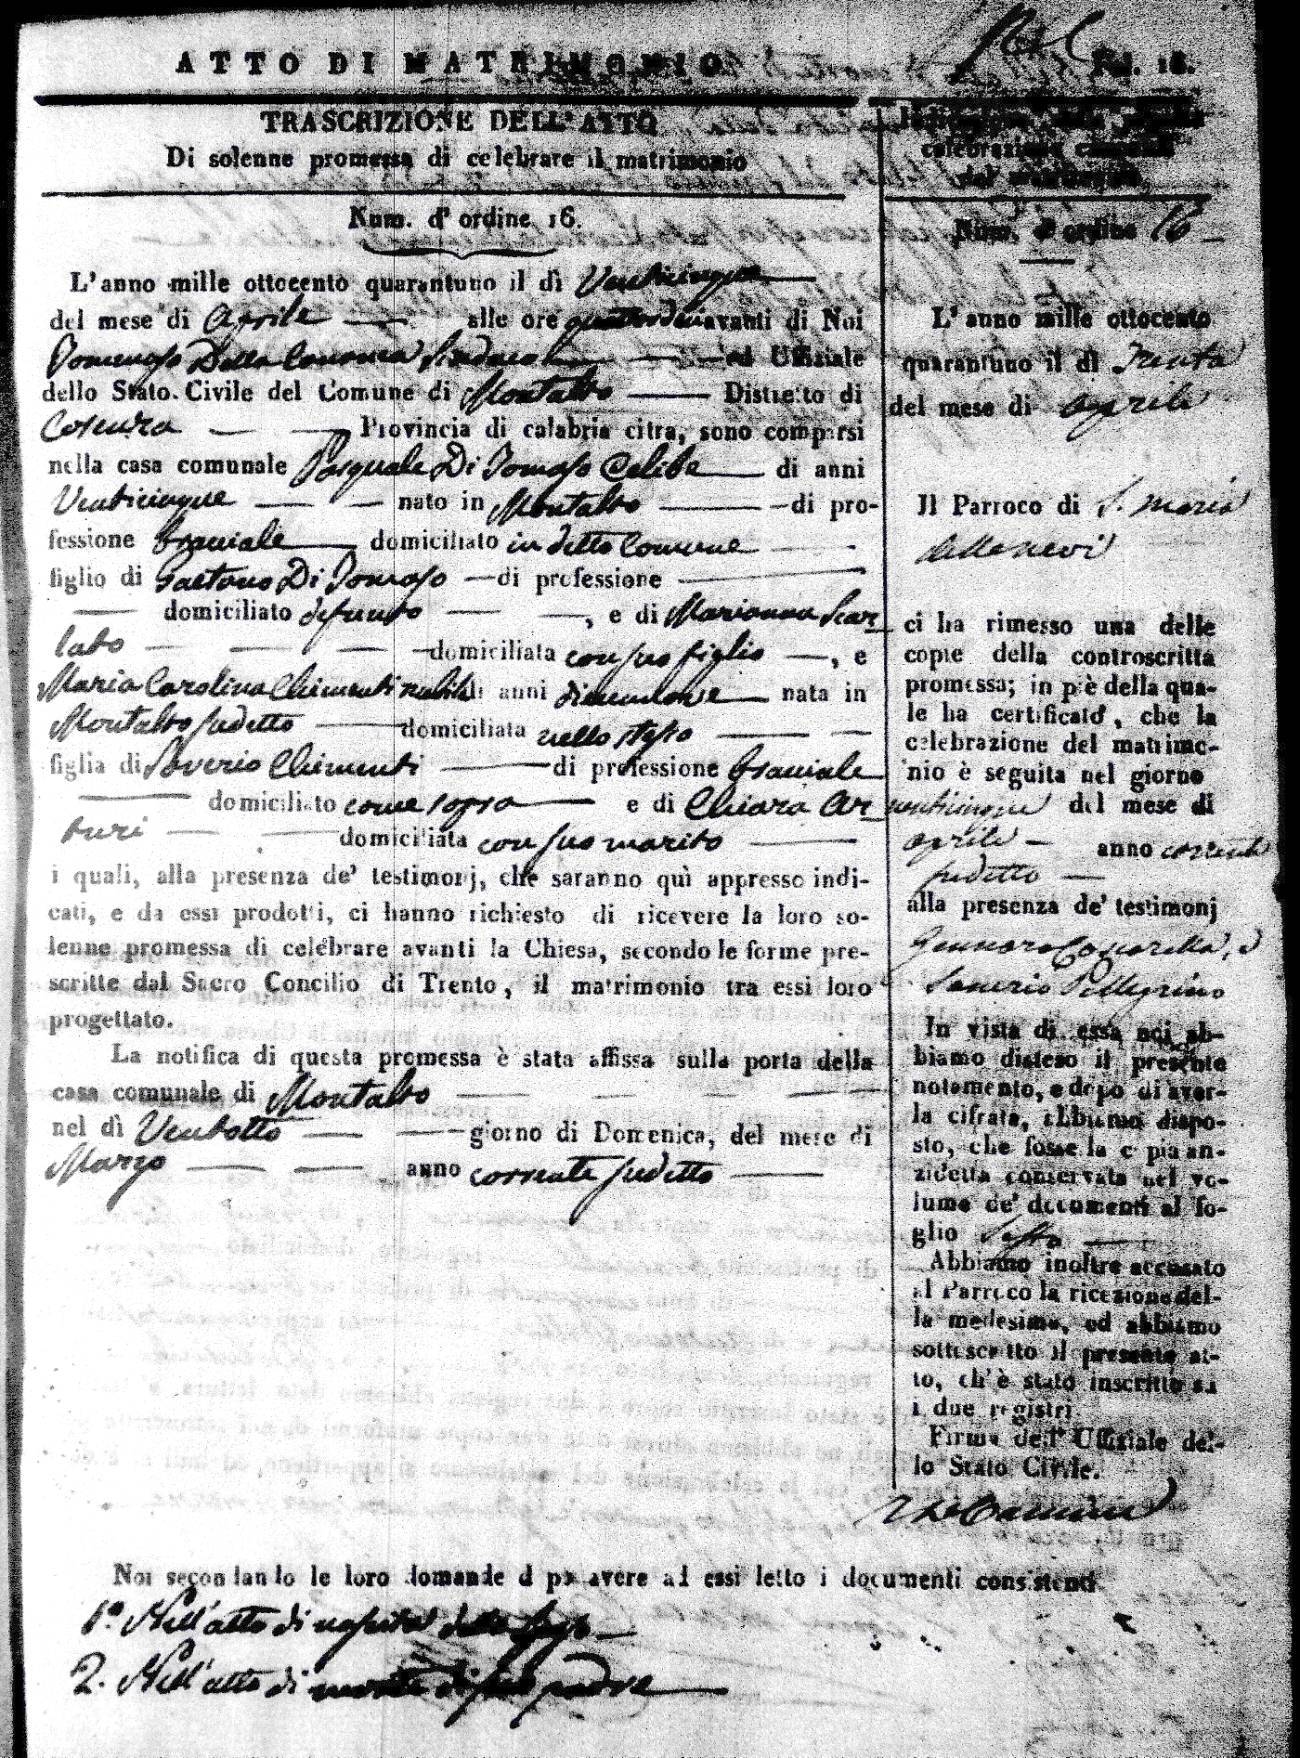 ATTO DI MATRIMONIO
Fol. 16.
TRASCRIZIONE DELL'ATTO
Di solenne promessa di celebrare il matrimonio
Num. d'ordine 16.
L'anno mille ottocento quarantuno il dì Venticinque
del mese di Aprile alle ore quattordici avanti di Noi
Domenico Della Sindaco ed Uffiziale
dello Stato Civile del Comune di Montalto Distretto di
Cosenza Provincia di calabria citra, sono comparsi
nella casa comunale Pasquale Di Tomaso Celibe di anni
Venticinque nato in Montalto di pro-
fessione bracciale domiciliato in detto Comune
figlio di Gaetano Di Tomaso di professione
domiciliato defunto , e di Marianna Scar
lato domiciliata con suo figlio , e
Maria Carolina Chimenti nubile di anni diecinnove nata in
Montalto sudetto domiciliata nello stesso
figlia di Saverio Chimenti di professione bracciale
domiciliato come sopra e di Chiara Ar
turi domiciliata con suo marito
i quali, alla presenza de' testimonj, che saranno quì appresso indi-
cati, e da essi prodotti, ci hanno richiesto di ricevere la loro so-
lenne promessa di celebrare avanti la Chiesa, secondo le forme pre-
scritte dal Sacro Concilio di Trento, il matrimonio tra essi loro
progettato.
La notifica di questa promessa è stata affissa sulla porta della
casa comunale di Montalto
nel dì Ventotto giorno di Domenica, del mese di
Marzo anno corrente sudetto
celebrazione
del
Num. d'ordine 16
L'anno mille ottocento
quarantuno il dì Trenta
del mese di Aprile
Il Parroco di S. Maria
della nevi
ci ha rimesso una delle
copie della controscritta
promessa; in piè della qua-
le ha certificato, che la
celebrazione del matrimo-
nio è seguita nel giorno
venticinque del mese di
aprile anno corrente
sudetto
alla presenza de' testimonj
Gennaro , e
Saverio Pellegrino
In vista di essa noi ab-
biamo disteso il presente
notamento, e dopo di aver-
la cifrata, abbiamo dispo-
sto, che fosse la copia an-
zidetta conservata nel vo-
lume de' documenti al fo-
glio Sesto
Abbiamo inoltre accusato
al Parroco la ricezione del-
la medesima, ed abbiamo
sottoscritto il presente at-
to, ch'è stato inscritto su
i due registri.
Firma dell' Uffiziale del-
lo Stato Civile.
Noi secondando le loro domande dopo avere ad essi letto i documenti consistenti
1.° Nell'atto di nascita dello sposo
2. Nell'atto di morte di suo padre